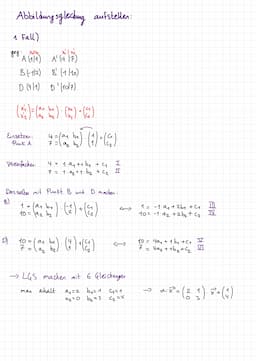 Abbildungsgleichung aufstellen:
1. Fall)
geg: A(1|1) A'(4|7)
B(-1|2) B'(1|10)
D(4|1) D'(10|7)
(x₁' x₂') = (a₁ b₁ a₂ b₂) · (x₁ x₂) + (c₁ c₂)
Einsetzen: Punkt A 4 7 = (a₁ b₁ a₂ b₂) · (1 1) + (c₁ c₂)
Vereinfachen: 4 = 1·a₁ + 1·b₁ + c₁ I
7 = 1·a₂ + 1·b₂ + c₂ II
Dasselbe mit Punkt B und D machen:
B) 1 10 = (a₁ b₁ a₂ b₂) · (-1 2) + (c₁ c₂) ⟺ 1 = -1a₁ + 2b₁ + c₁ III
10 = -1a₂ + 2b₂ + c₂ IV
D) 10 7 = (a₁ b₁ a₂ b₂) · (4 1) + (c₁ c₂) ⟺ 10 = 4a₁ + 1b₁ + c₁ V
7 = 4a₂ + 1b₂ + c₂ VI
→ LGS machen mit 6 Gleichungen
man erhält a₁=2 b₁=1 c₁=1 → α: x⃗' = (2 1 0 3) · x⃗ + (1 4)
a₂=0 b₂=3